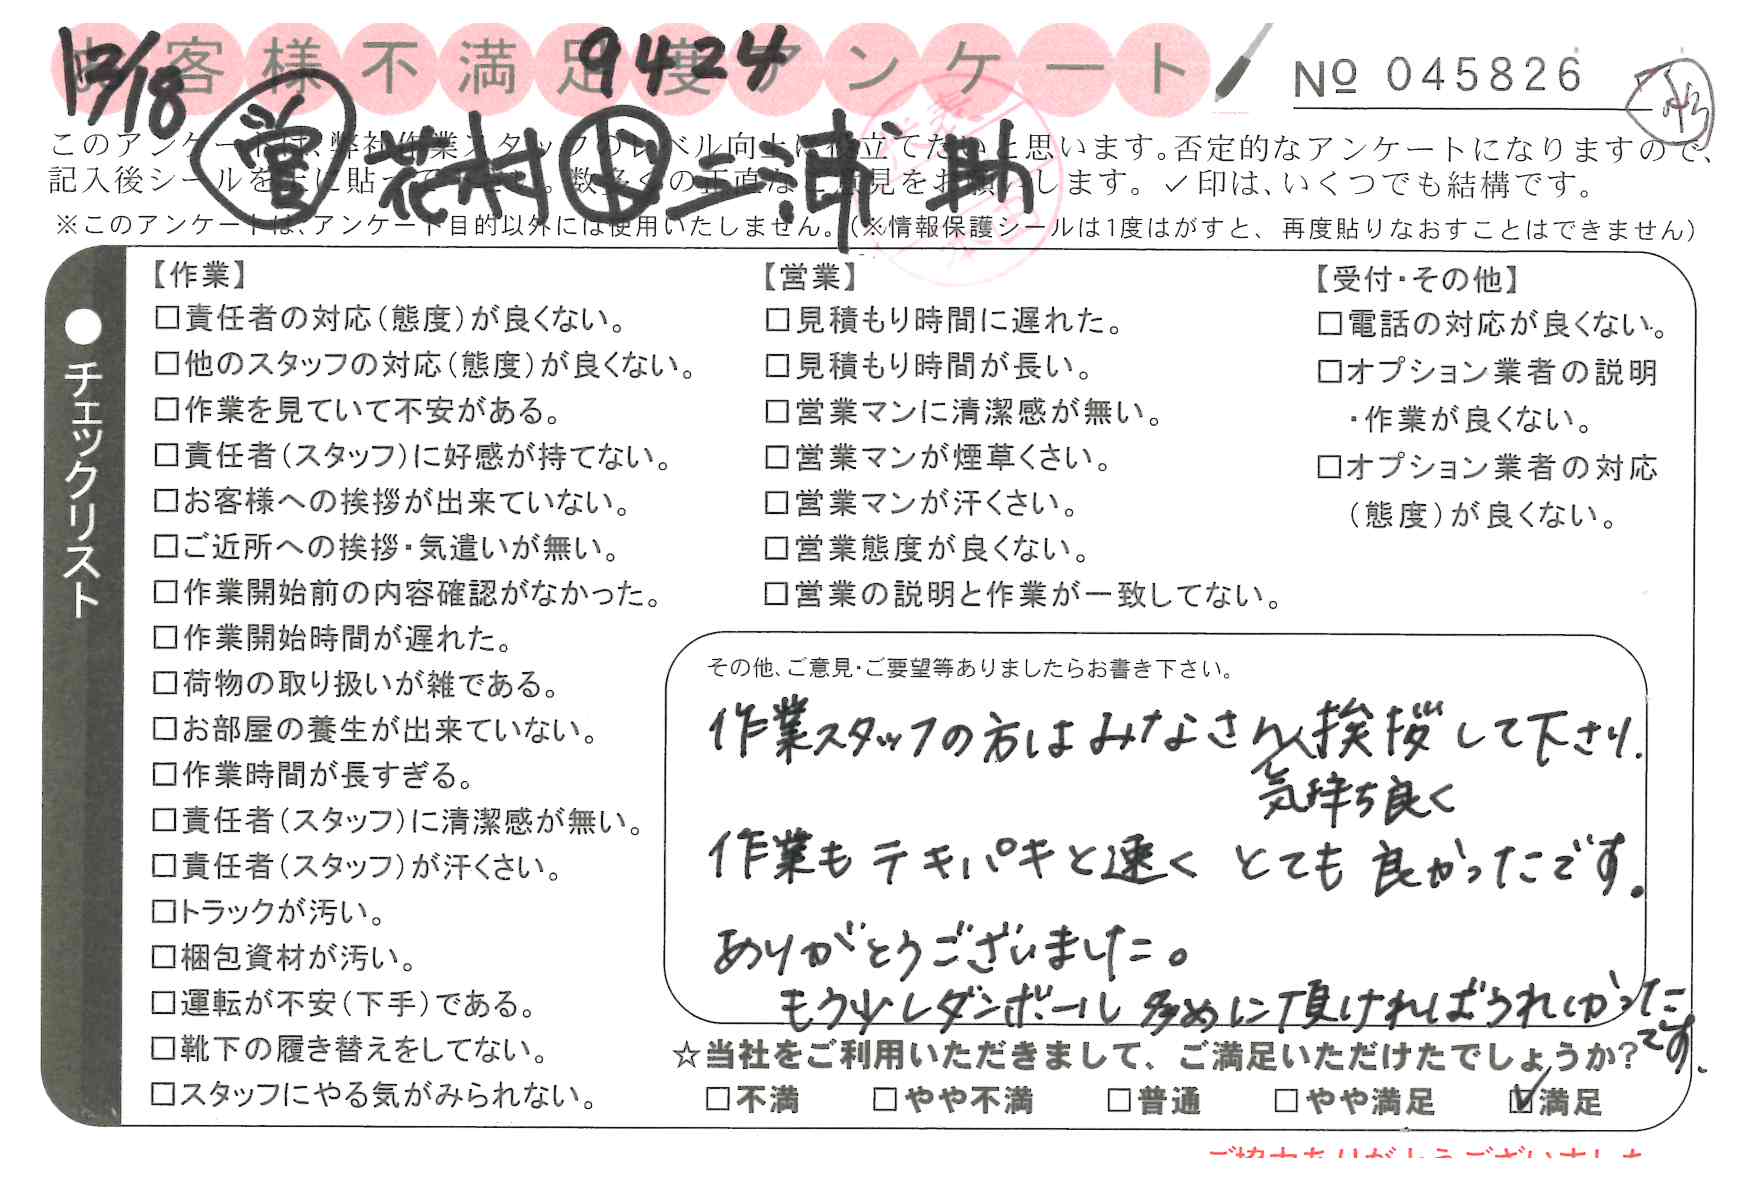 お客様不満足度アンケート
12/18
9424
No 045826
営 花村 ド 三浦 助
このアンケートは、弊社作業スタッフのレベル向上に役立てたいと思います。否定的なアンケートになりますので、
記入後シールを上に貼って下さい。数多くの正直なご意見をお願いします。✓印は、いくつでも結構です。
※このアンケートは、アンケート目的以外には使用いたしません。(※情報保護シールは1度はがすと、再度貼りなおすことはできません)
●チェックリスト
【作業】
□責任者の対応(態度)が良くない。
□他のスタッフの対応(態度)が良くない。
□作業を見ていて不安がある。
□責任者(スタッフ)に好感が持てない。
□お客様への挨拶が出来ていない。
□ご近所への挨拶・気遣いが無い。
□作業開始前の内容確認がなかった。
□作業開始時間が遅れた。
□荷物の取り扱いが雑である。
□お部屋の養生が出来ていない。
□作業時間が長すぎる。
□責任者(スタッフ)に清潔感が無い。
□責任者(スタッフ)が汗くさい。
□トラックが汚い。
□梱包資材が汚い。
□運転が不安(下手)である。
□靴下の履き替えをしてない。
□スタッフにやる気がみられない。
【営業】
□見積もり時間に遅れた。
□見積もり時間が長い。
□営業マンに清潔感が無い。
□営業マンが煙草くさい。
□営業マンが汗くさい。
□営業態度が良くない。
□営業の説明と作業が一致してない。
【受付・その他】
□電話の対応が良くない。
□オプション業者の説明
・作業が良くない。
□オプション業者の対応
(態度)が良くない。
その他、ご意見・ご要望等ありましたらお書き下さい。
作業スタッフの方はみなさん挨拶して下さり、
気持ち良く
作業もテキパキと速く とても良かったです。
ありがとうございました。
もう少しダンボール多めに頂ければうれしかった
です。
☆当社をご利用いただきまして、ご満足いただけたでしょうか?
□不満 □やや不満 □普通 □やや満足 ☑満足
ご協力ありがとうございました